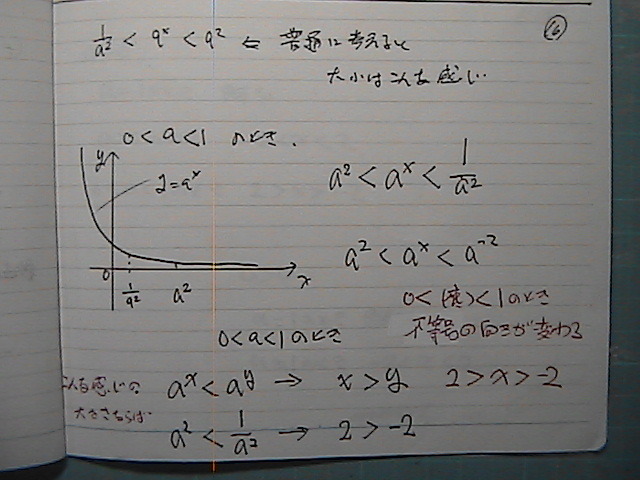 ⑯
1/a² < aˣ < a² ⇐ 普通に考えると
大小はこんな感じ
0 < a < 1 のとき.
y
y=aˣ
a² < aˣ < 1/a²
a² < aˣ < a⁻²
0
1/a²
a²
x
0 < (底) < 1 のとき
不等号の向きが変わる
0 < a < 1 のとき
こんな感じの
大きさならば
aˣ < aʸ → x > y 2 > x > -2
a² < 1/a² → 2 > -2